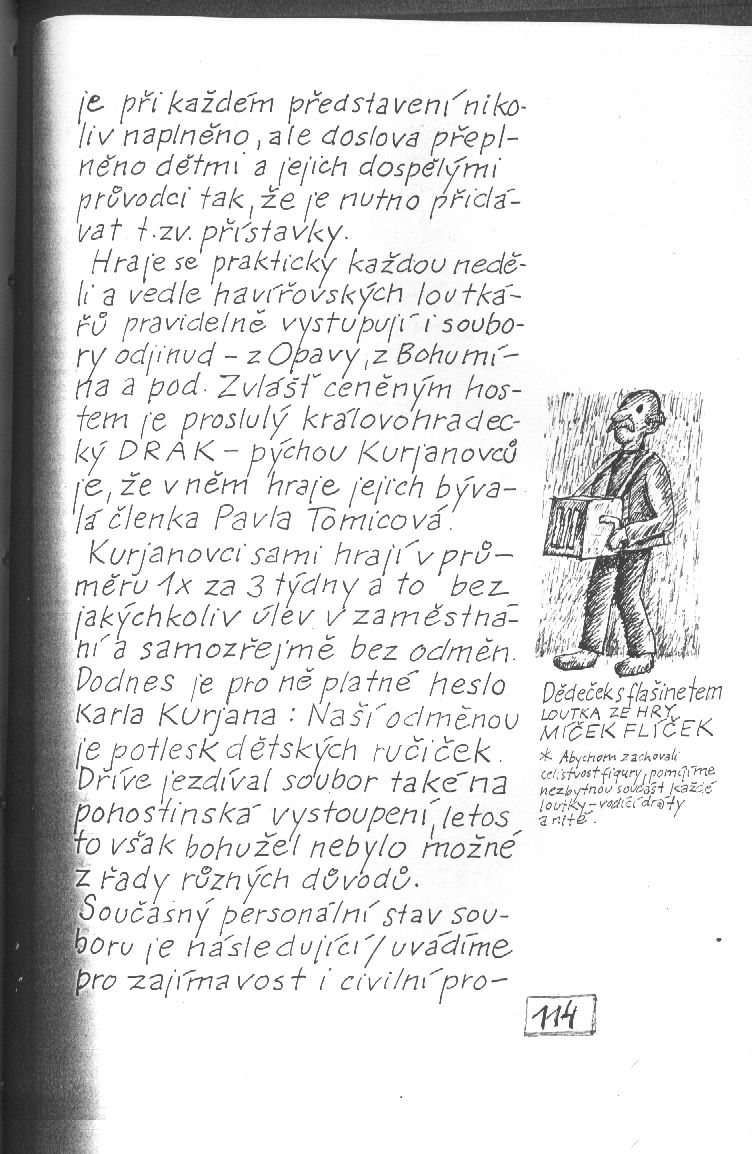 je při každém představení niko-
liv naplněno, ale doslova přepl-
něno dětmi a jejich dospělými
průvodci tak, že je nutno přidá-
vat t.zv. přístavky.
Hraje se prakticky každou nedě-
li a vedle havířovských loutká-
řů pravidelně vystupují i soubo-
ry odjinud – z Opavy, z Bohumí-
na a pod. Zvlášť ceněným hos-
tem je proslulý královohradec-
ký DRAK – pýchou Kurjanovců
je, že v něm hraje jejich býva-
lá členka Pavla Tomicová.
Kurjanovci sami hrají v prů-
měru 1x za 3 týdny a to bez
jakýchkoliv úlev v zaměstná-
ní a samozřejmě bez odměn.
Dodnes je pro ně platné heslo
Karla Kurjana: Naší odměnou
je potlesk dětských ručiček.
Dříve jezdíval soubor také na
pohostinská vystoupení, letos
to však bohužel nebylo možné
z řady různých důvodů.
Současný personální stav sou-
boru je následující / uvádíme
pro zajímavost i civilní pro-
Dědeček s flašinetem
LOUTKA ZE HRY
MÍČEK FLÍČEK
* Abychom zachovali
celistvost figury, pomíjíme
nezbytnou součást každé
loutky – vodící dráty
a nitě.
114